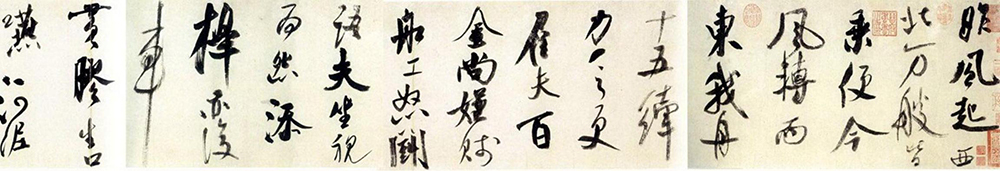 昨風起西
北万艘皆
乘便今
風轉而
東我舟
十五縴
力乏更
雇夫百
金尚嫌賤
船工怒鬭
語夫坐視
而怨添
槔亦復
車
黃膠生口
嚥河泥